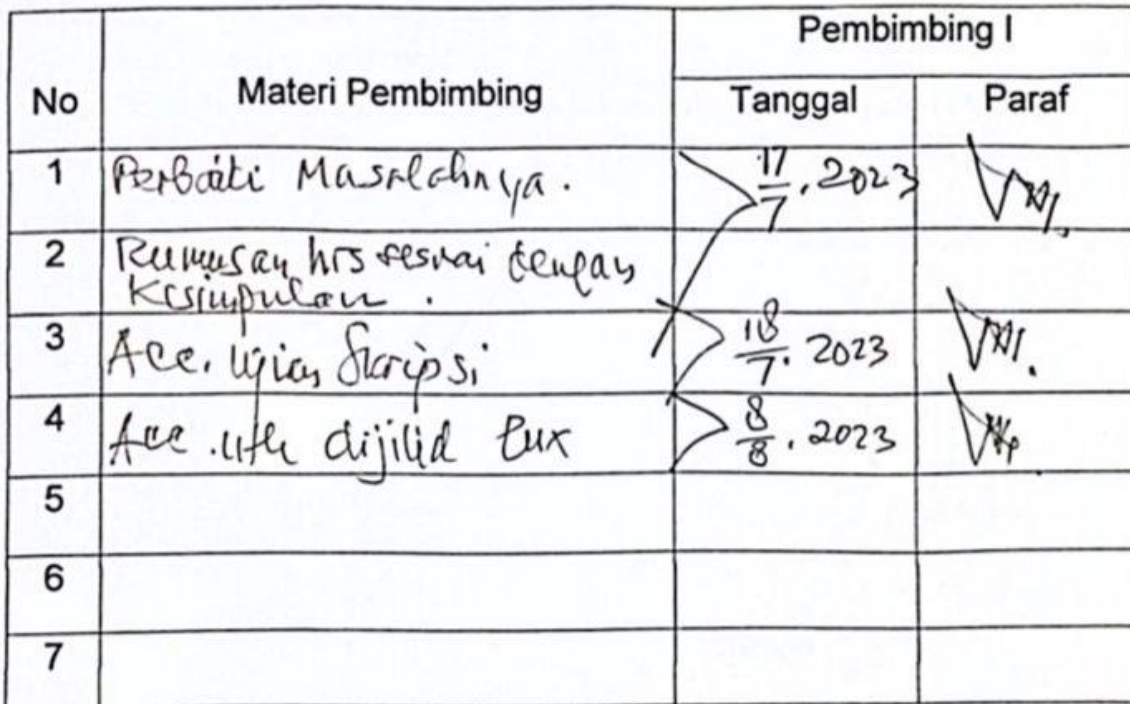 Pembimbing I
No Materi Pembimbing Tanggal Paraf
1 Perbaiki Masalahnya. 17/7. 2023
2 Rumusan hrs sesuai dengan
Kesimpulan.
3 Acc. Ujian Skripsi 18/7. 2023
4 Acc. utk dijilid Lux 8/8. 2023
5
6
7